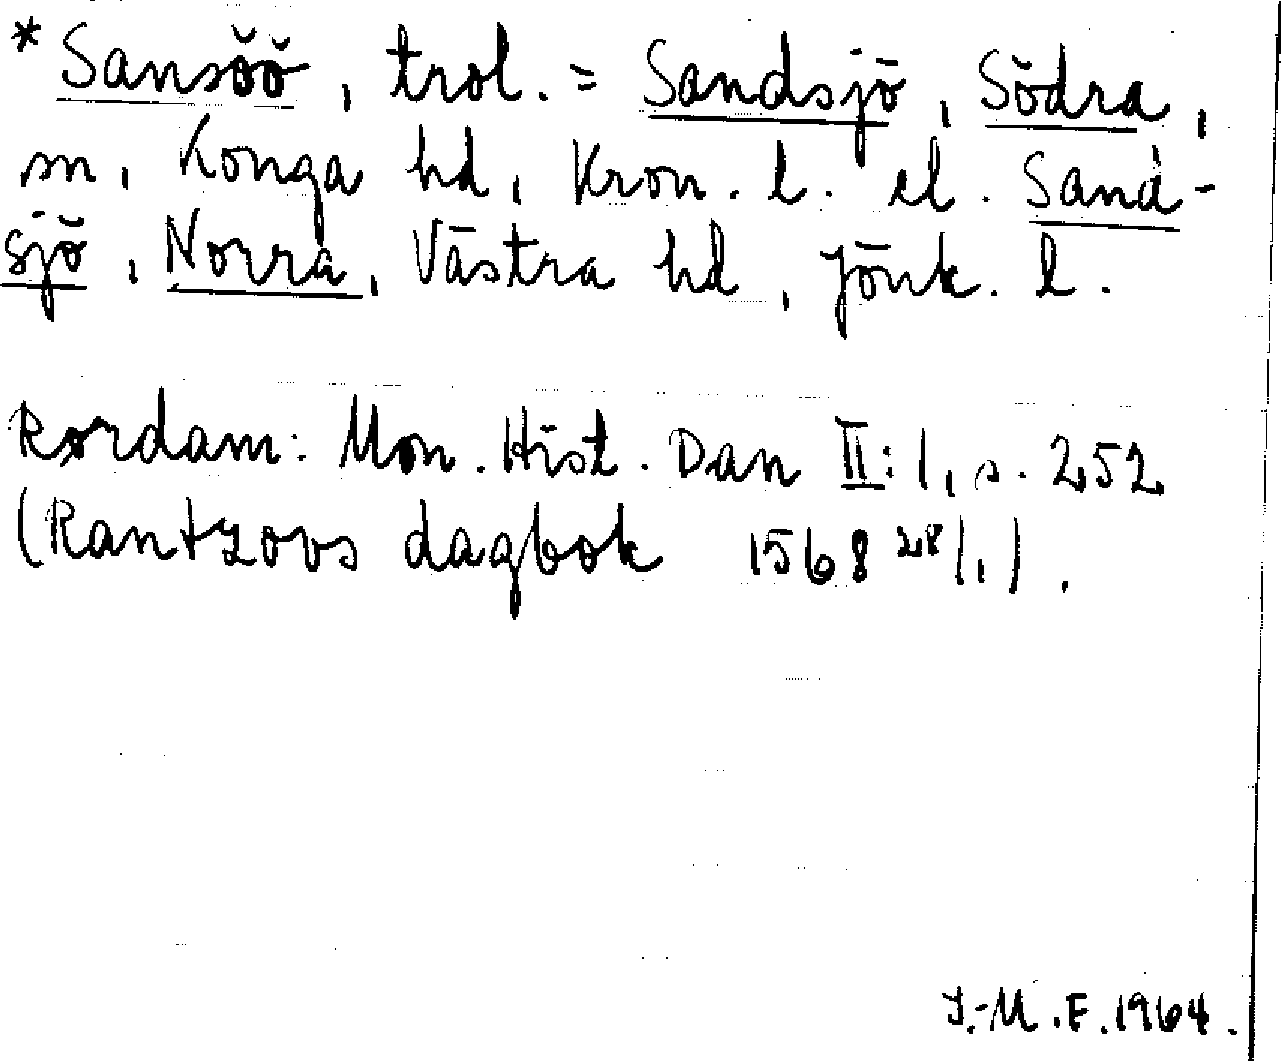 *Sansöö, trol. = Sandsjö, Södra,
sn, Konga hd, Kron. l. el. Sand-
sjö, Norra, Västra hd, Jönk. l.
Rørdam: Mon. Hist. Dan II:1, s. 252
(Rantzovs dagbok 1568 28/1).
I.-M.F. 1964.